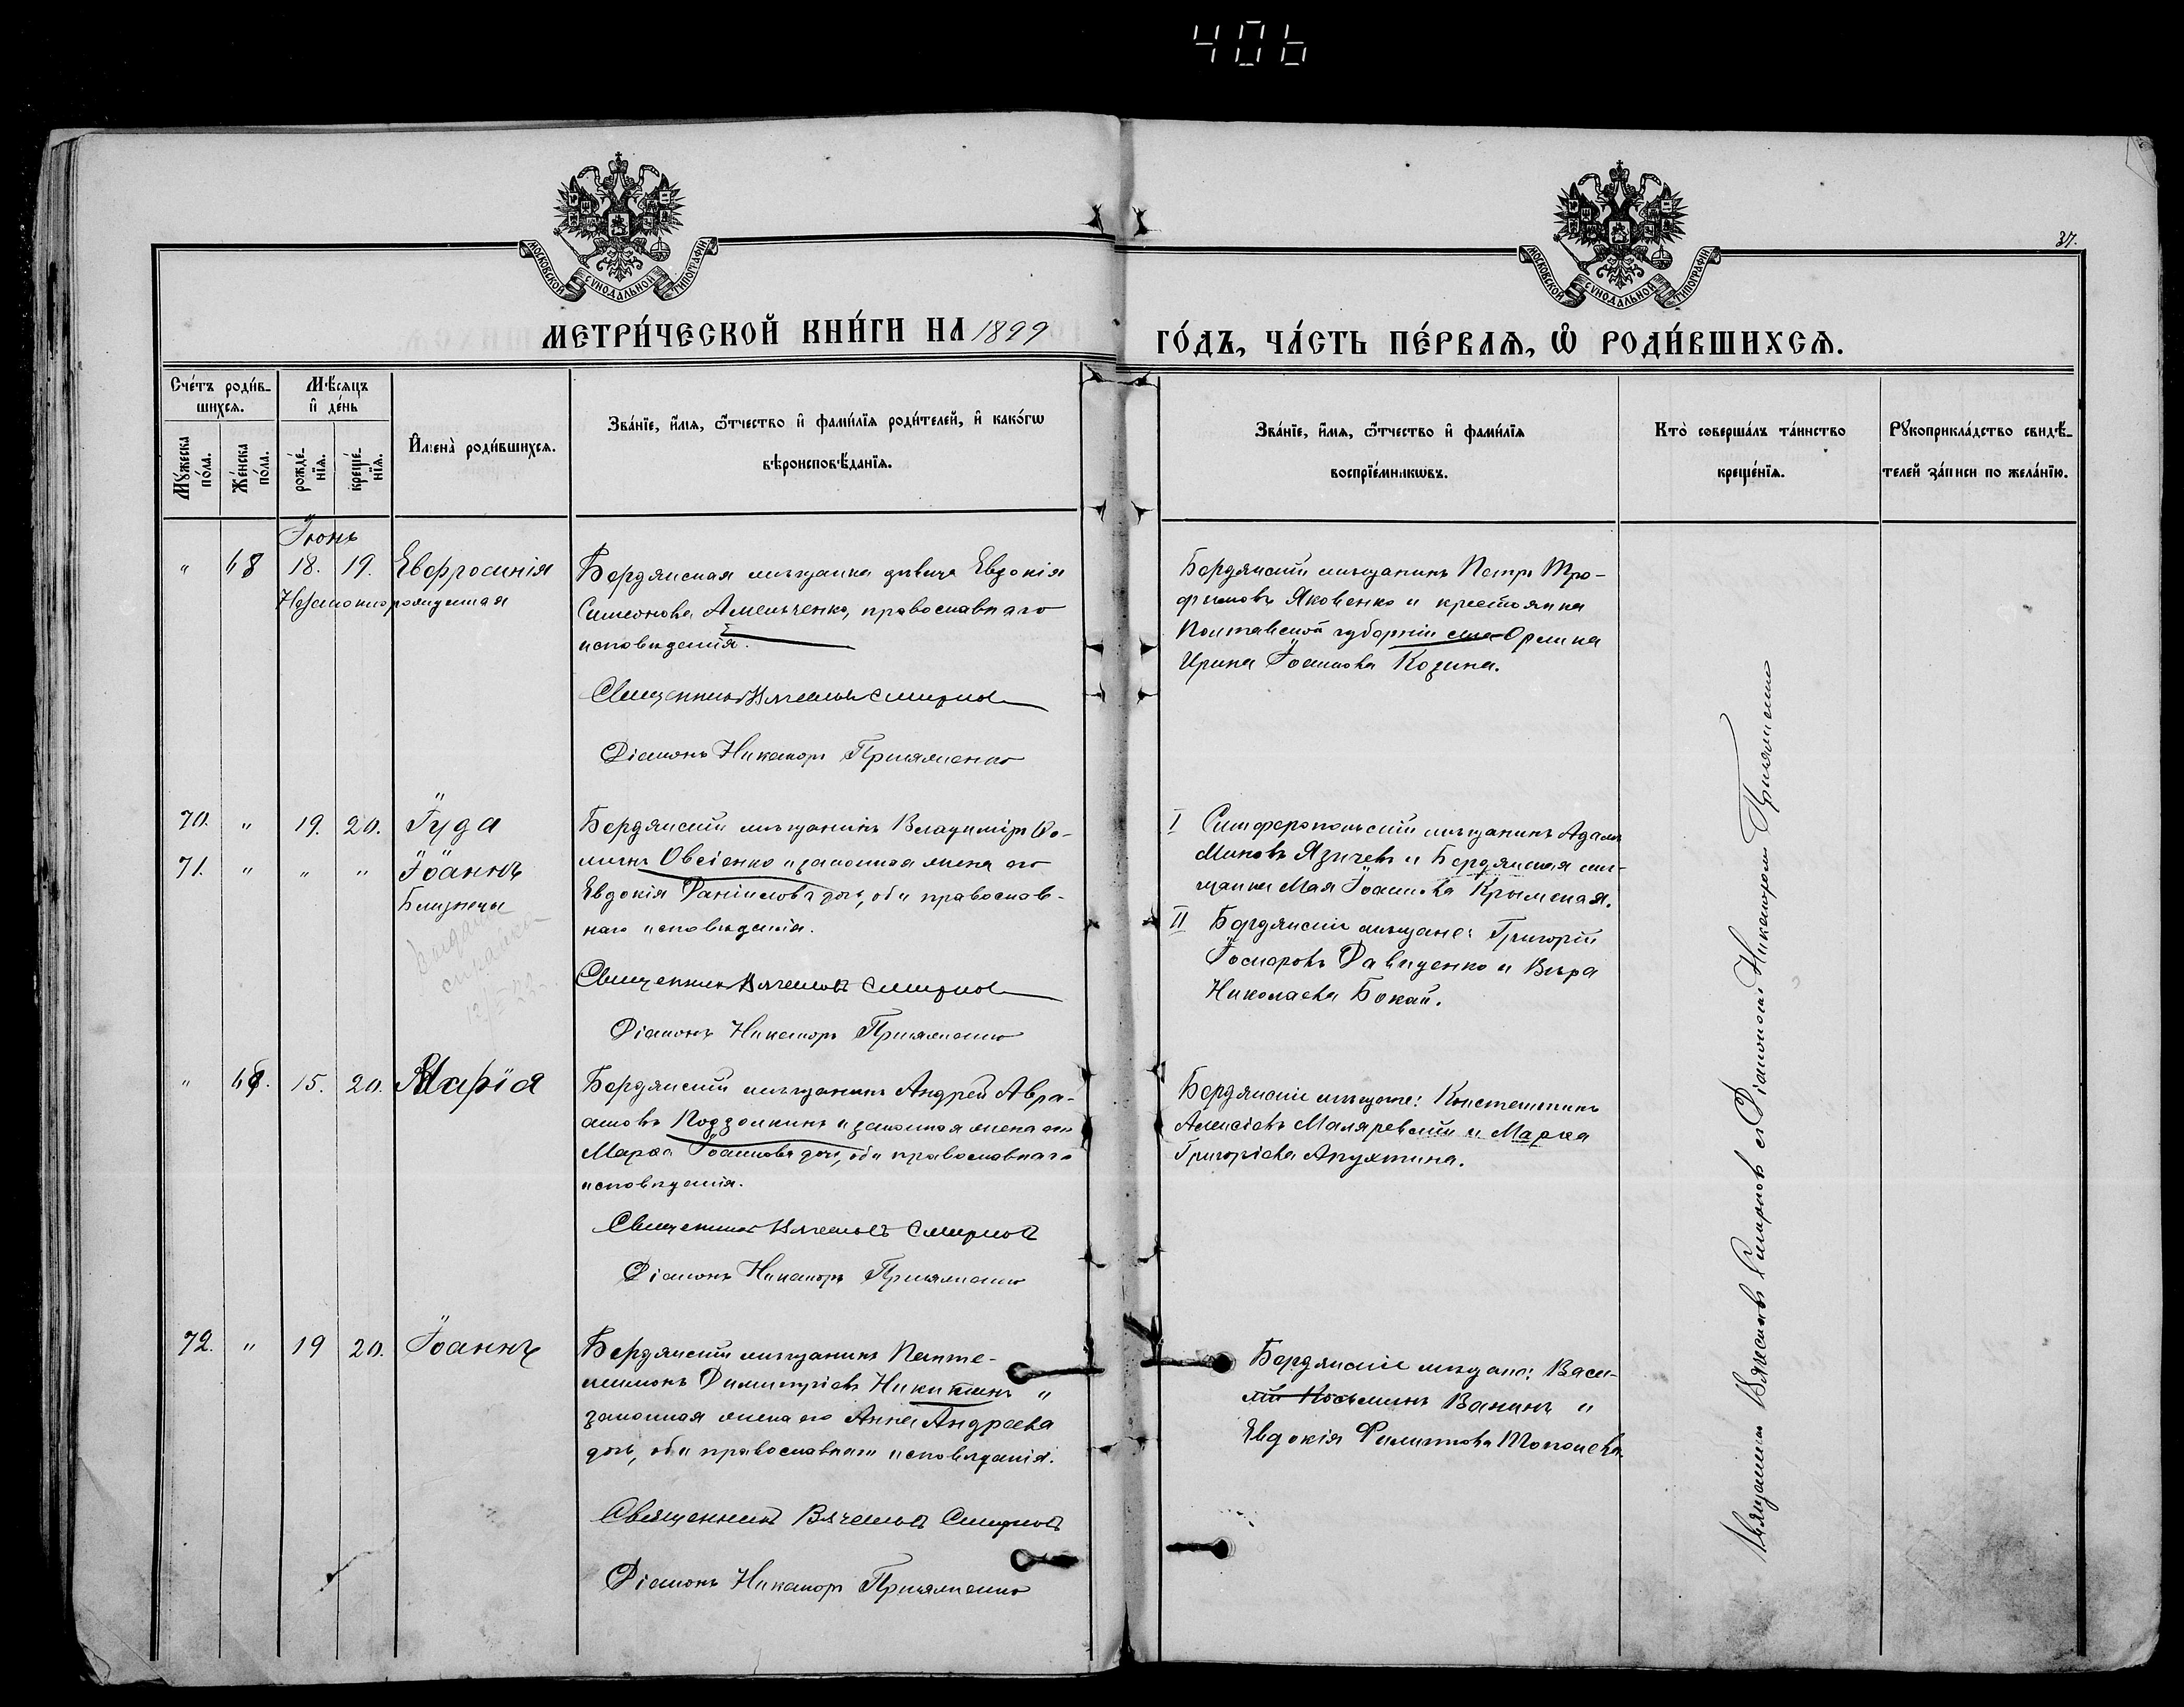 406
МОСКОВСКОЙ СѴНОДАЛЬНОЙ ТИПОГРАФІИ
МОСКОВСКОЙ СѴНОДАЛЬНОЙ ТИПОГРАФІИ
37.
МЕТРИ́ЧЕСКОЙ КНИ́ГИ НА 1899 ГО́ДЪ, ЧА́СТЬ ПЕ́РВАѦ, Ѽ РОДИ́ВШИХСѦ.
Сче́тъ роди́в-
шихсѧ.
Мꙋжеска по́ла.
Же́нска по́ла.
Мѣ́сѧцъ
и҆ де́нь
рожде́-
нїѧ.
креще́-
нїѧ.
И҆мена̀ роди́вшихсѧ.
Зва́нїе, и҆́мѧ, ѻ҆́тчество и҆ фами́лїѧ роди́телей, и҆ како́гѡ
вѣроисповѣ́данїѧ.
Зва́нїе, и҆́мѧ, ѻ҆́тчество и҆ фами́лїѧ
воспрїе́мникѡвъ.
Кто̀ соверша́лъ та́инство
креще́нїѧ.
Рꙋкоприкла́дство свидѣ́-
телей за́писи по жела́нїю.
Іюнь
" 68 18. 19. Евфросинія
Незаконнорожденная
Бердянская мѣщанка дѣвица Евдокія
Симеонова Амельченко, православнаго
исповѣданія.
Священникъ Вячеславъ Смирнов
Діаконъ Никаноръ Прияменко
Бердянскій мѣщанинъ Петръ Тро-
фимовъ Яковенко и крестьянка
Полтавской губерніи Орлика
Ирина Іоаннова Козина.
70. " 19. 20. Іуда
71. " " " Іоаннъ
Близнецы
Бердянскій мѣщанинъ Владиміръ Ѳо-
минъ Овсіенко и законная жена его
Евдокія Даніилова дочь, оба православ-
наго исповѣданія.
Священникъ Вячеславъ Смирнов
Діаконъ Никаноръ Прияменко
I Симферопольскій мѣщанинъ Адамъ
Миновъ Язичевъ и Бердянская мѣ-
щанка Мая Іоаннова Крымская.
II Бердянскіе мѣщане: Григорій
Давиденко и Вѣра
Николаева Бокай.
выдана
справка
" 69. 15. 20. Марія
Бердянскій мѣщанинъ Андрей Авра-
амовъ Подзолкинъ и законная жена его
Марѳа Іоаннова дочь, оба православнаго
исповѣданія.
Священникъ Вячеславъ Смирновъ
Діаконъ Никаноръ Прияменко
Бердянскіе мѣщане: Константинъ
Алексіевъ Маляревскій и Марѳа
Григоріева Апухтина.
72. " 19 20. Іоаннъ
Бердянскій мѣщанинъ Панте-
леимонъ Димитріевъ Никиткинъ и
законная жена его Анна Андреева
дочь, оба православнаго исповѣданія.
Священникъ Вячеславъ Смирновъ
Діаконъ Никаноръ Прияменко
Бердянскіе мѣщане: Васи-
лій Косьминъ Ванинъ и
Евдокія Филиппова Тополева.
Священникъ Вячеславъ Смирновъ съ Діакономъ Никаноромъ Прияменко